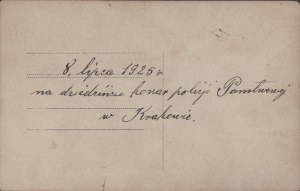 8. lipca 1925 r
na dziedzińcu komar policji Państwowej
w Krakowie.